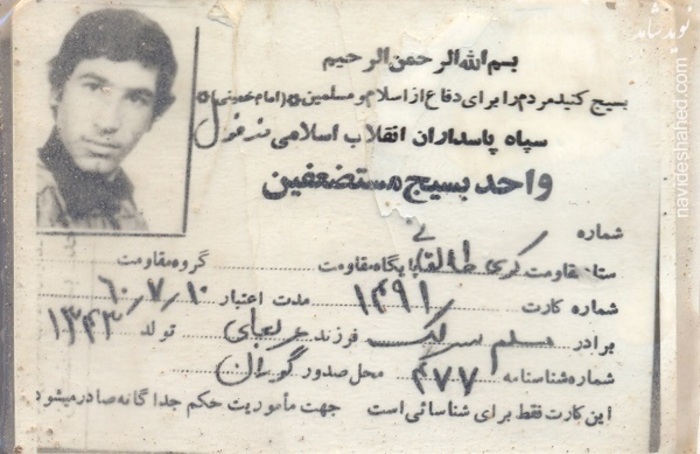 بسم الله الرحمن الرحیم
بسیج کنید مردم را برای دفاع از اسلام و مسلمین (امام خمینی)
سپاه پاسداران انقلاب اسلامی دزفول
واحد بسیج مستضعفین
شماره
ستاد مقاومت پایگاه مقاومت گروه مقاومت
شماره کارت ۱۴۹۱ مدت اعتبار ۶۰٫۷٫۱۰
برادر مسلم فرزند تولد ۱۳۴۳
شماره شناسنامه ۴۷۷ محل صدور گوران
این کارت فقط برای شناسائی است جهت مأموریت حکم جداگانه صادر میشود
نوید شاهد
navideshahed.com